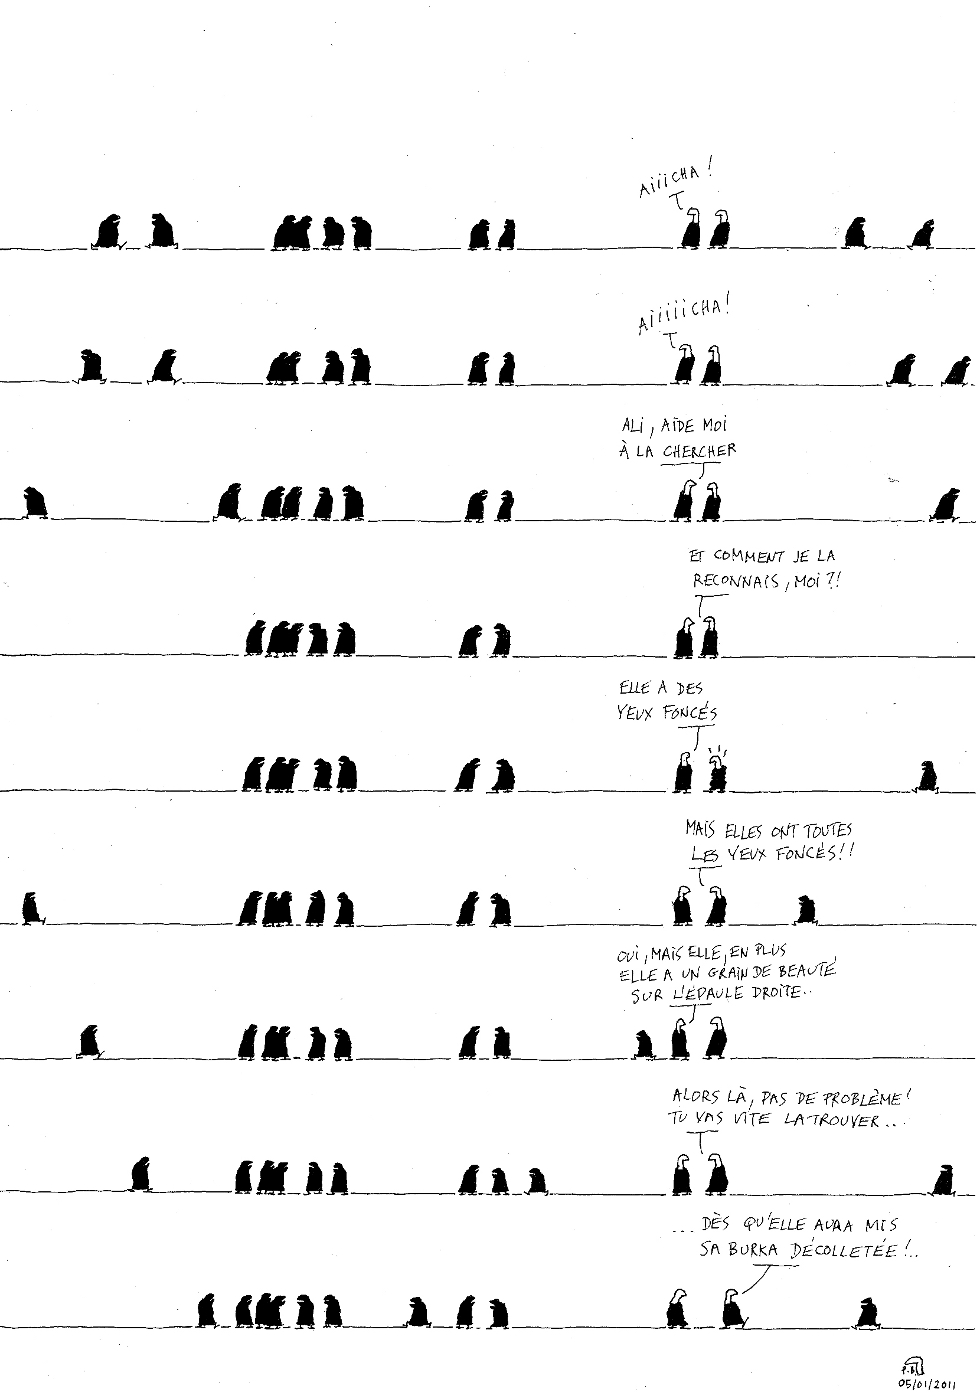 AiiiCHA !
AiiiiiCHA !
ALi, AÏDE MOI
À LA CHERCHER
ET COMMENT JE LA
RECONNAIS, MOi ?!
ELLE A DES
YEUX FONCÉS
MAIS ELLES ONT TOUTES
LES YEUX FONCÉS !!
OUi, MAiS ELLE, EN PLUS
ELLE A UN GRAiN DE BEAUTÉ
SUR L'ÉPAULE DROITE..
ALORS LÀ, PAS DE PROBLÈME !
TU VAS VITE LA TROUVER ...
... DÈS QU'ELLE AURA MIS
SA BURKA DÉCOLLETÉE !..
05/01/2011